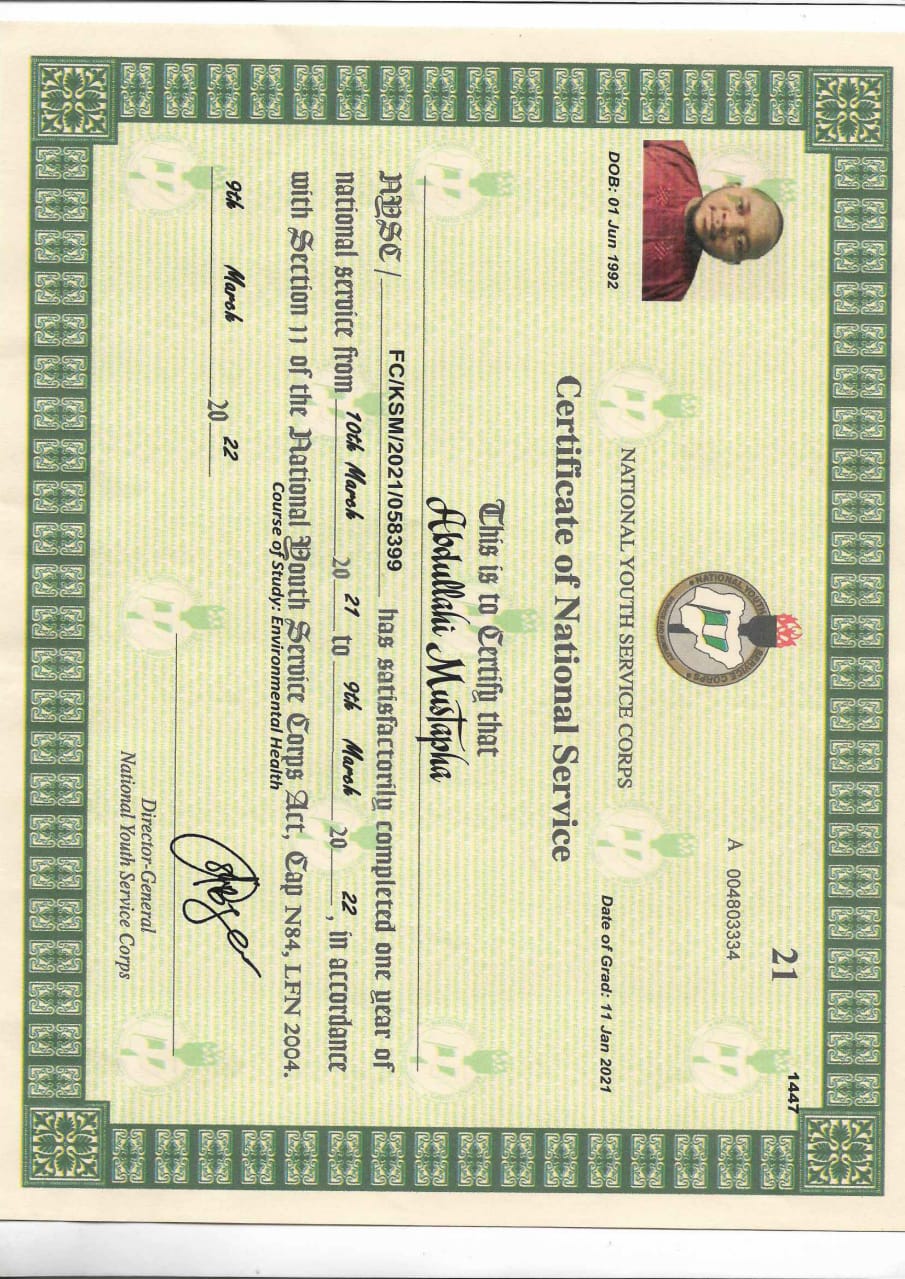 21
1447
A 004803334
NATIONAL YOUTH SERVICE CORPS
DOB: 01 Jun 1992
Date of Grad: 11 Jan 2021
Certificate of National Service
This is to Certify that
Abdullahi Mustapha
NYSC / FC/KSM/2021/058399 has satisfactorily completed one year of
national service from 10th March 20 21 to 9th March 20 22, in accordance
with Section 11 of the National Youth Service Corps Act, Cap N84, LFN 2004.
Course of Study: Environmental Health
9th March 20 22
Director-General
National Youth Service Corps